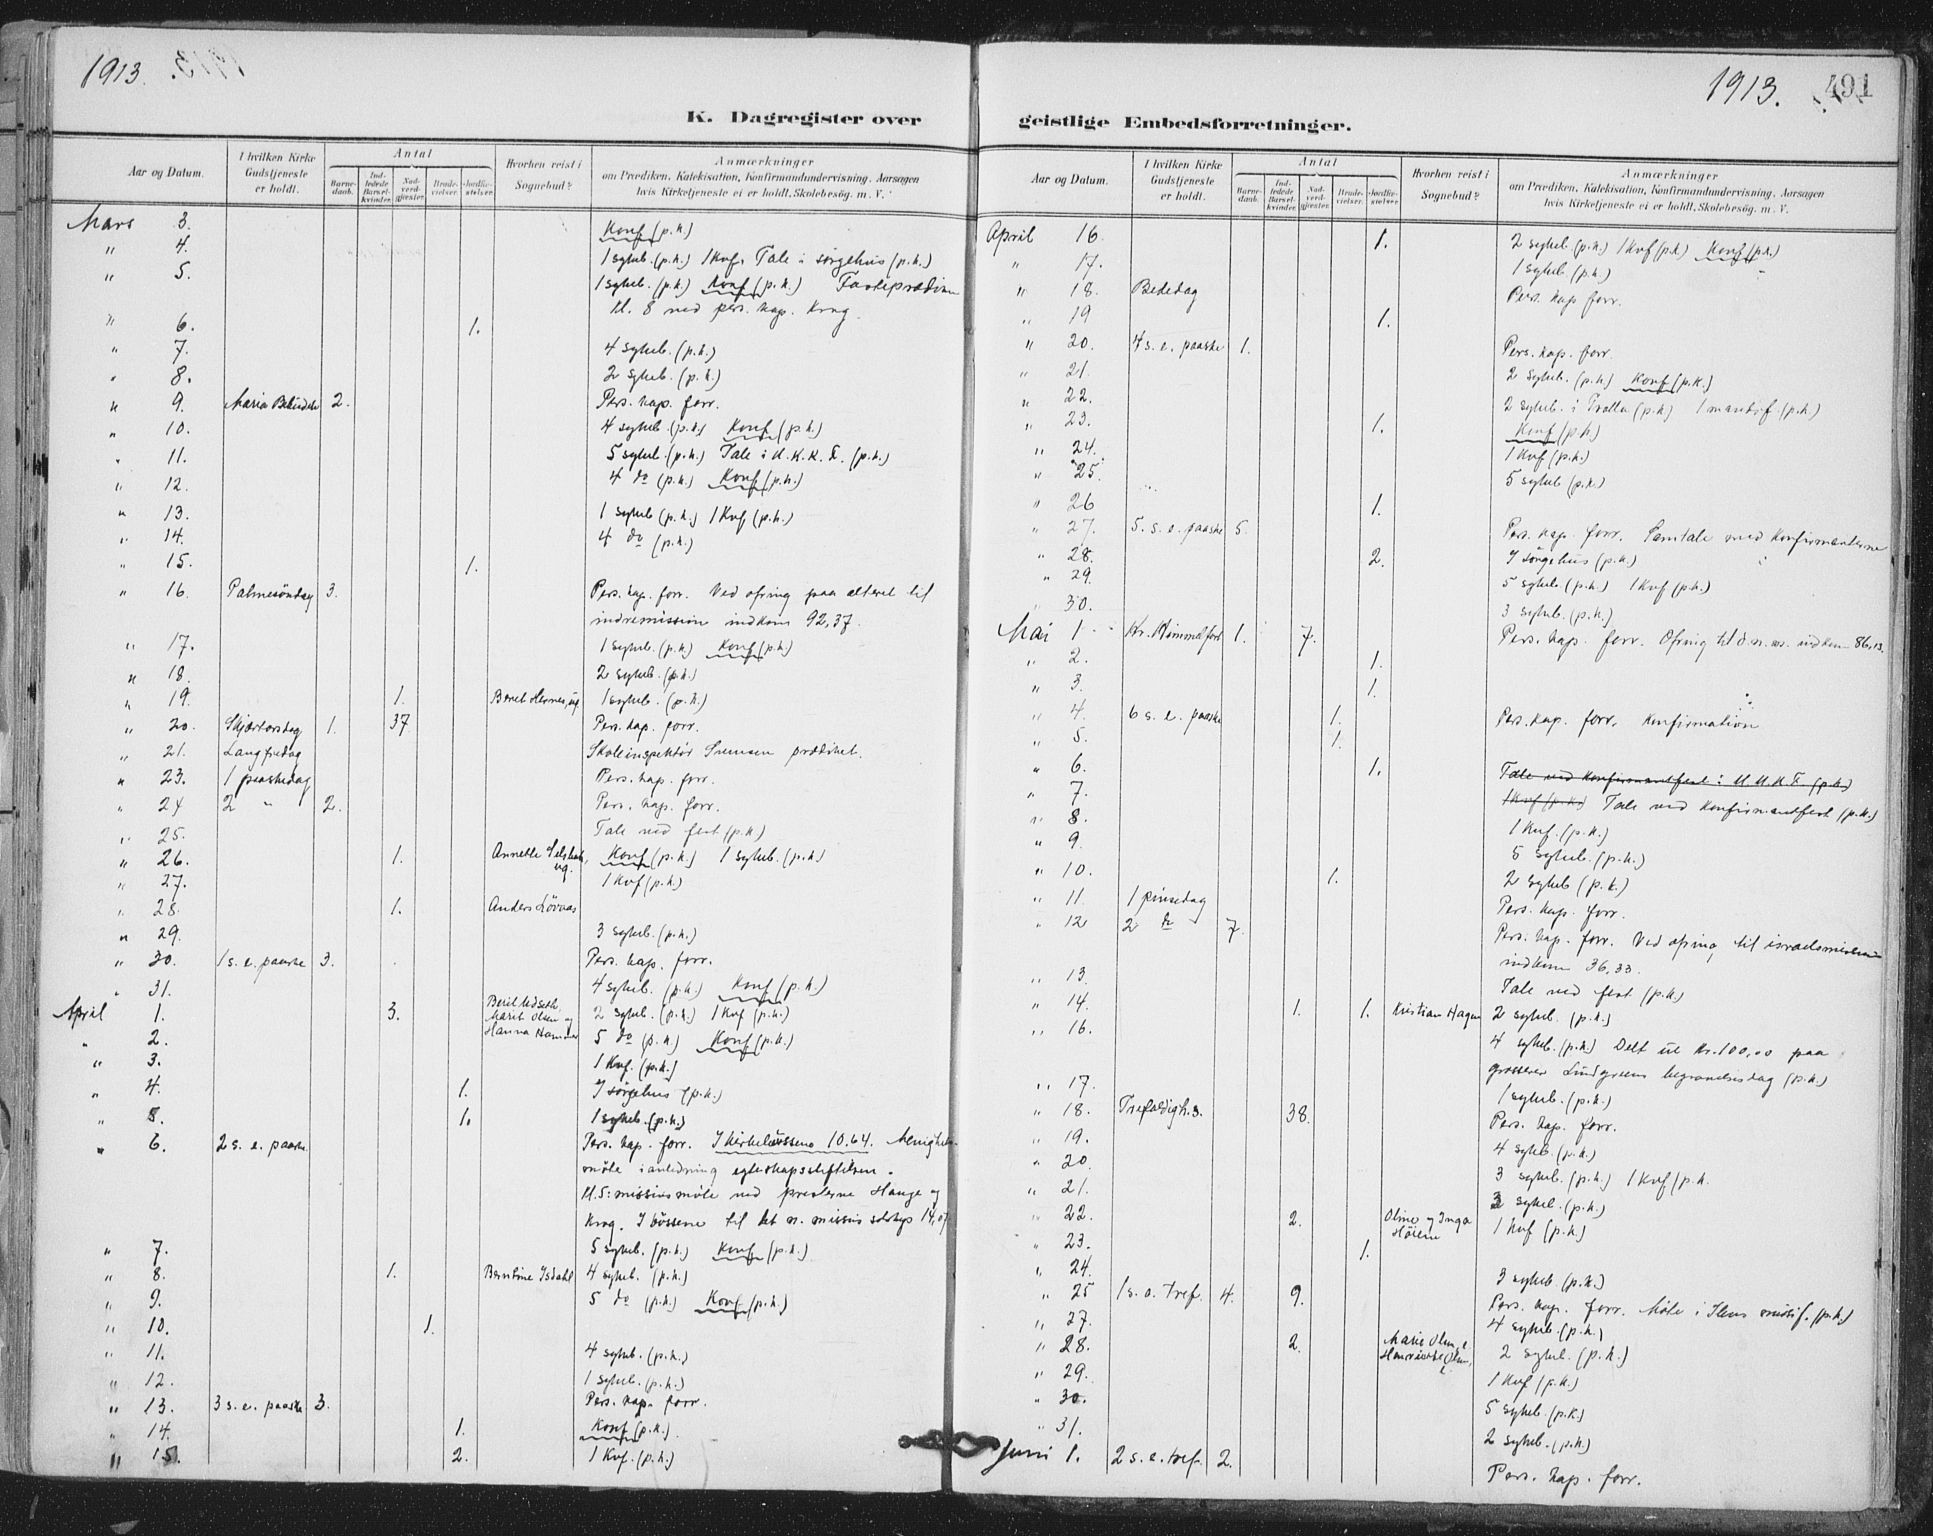 1913.
K. Dagregister over
Aar og Datum.
I hvilken Kirke Gudstjeneste er holdt.
Antal
Barne-daab.
Ind-ledede Barsel-kvinder.
Nad-verd-gjæster.
Brude-vielser.
Jordfæ-stelser.
Hvorhen reist i Sognebud?
Anmærkninger
om Prædiken, Katekisation, Konfirmandundervisning, Aarsagen
hvis Kirketjeneste ei er holdt, Skolebesøg. m. V.
Mars 3. Konf (p.k.)
" 4. 1 sykeb. (p.k.) 1 Kvf. Tale i sørgehus (p.k.)
" 5. 1 sykeb. (p.k.) Konf (p.k.) Fasteprædiken
kl. 8 ved pers. kap. Krog.
" 6. 1.
" 7. 4 sykeb. (p.k.)
" 8. 2 sykeb. (p.k.)
" 9. Maria Bebudelse 2. Pers. kap. forr.
" 10. 4 sykeb. (p.k.) Konf (p.k.)
" 11. 5 sykeb. (p.k.) Tale i U.K.K.F. (p.k.)
" 12. 4 do (p.k.) Konf (p.k.)
" 13. 1 sykeb (p.k.) 1 Kvf (p.k.)
" 14. 4 do (p.k.)
" 15. 1.
" 16. Palmesöndag 3. Pers. kap. forr. Ved ofring paa alteret til
indremission indkom 92,37.
" 17. 1 sykeb. (p.k.) Konf (p.k.)
" 18. 2 sykeb. (p.k.)
" 19. 1. Beret Hernes, ug. 1 sykeb. (p.k.)
" 20. Skjærtorsdag 1. 37 Pers. kap. forr.
" 21. Langfredag Skoleinspektör Svensen prædiket.
" 23. 1 paaskedag Pers. kap. forr.
" 24 2 " 2. Pers. kap. forr.
" 25. Tale ved fest (p.k.)
" 26. 1. Annette ug. Konf (p.k.) 1 sykeb. (p.k.)
" 27. 1 Kvf (p.k.)
" 28. 1. Anders Lövaas
" 29. 3 sykeb. (p.k.)
" 30. 1 s. e. paaske 3. Pers. kap. forr.
" 31. 4 sykeb. (p.k.) Konf (p.k.)
April 1. 3. Berit Udseth, Marit Olsen og Hanna Hammer 2 sykeb. (p.k.) 1 Kvf (p.k.)
" 2. 5 do (p.k.) Konf (p.k.)
" 3. 1 Kvf. (p.k.)
" 4. 1. I sørgehus (p.k.)
" 5. 1. 1 sykeb. (p.k.)
" 6. 2 s. e. paaske Pers. kap. forr. I kirkebössene 10.64. Menighets-
möte i anledning egteskapsstiftelsen.
Kl. 5: missionsmöte ved presterne Hauge og
Krog. I bössene til det n. missions selskap 14,07
" 7. 5 sykeb. (p.k.) Konf (p.k.)
" 8. 1. Berntine Isdahl 4 sykeb. (p.k.)
" 9. 5 do (p.k.) Konf (p.k.)
" 10. 1.
" 11. 4 sykeb. (p.k.)
" 12. 1 sykeb. (p.k.)
" 13. 3 s. e. paaske 3. Pers. kap. forr.
" 14. 1. Konf (p.k.)
" 15. 2. 1 Kvf. (p.k.)
1913.
491
geistlige Embedsforretninger.
Aar og Datum.
I hvilken Kirke Gudstjeneste er holdt.
Antal
Barne-daab.
Ind-ledede Barsel-kvinder.
Nad-verd-gjæster.
Brude-vielser.
Jordfæ-stelser.
Hvorhen reist i Sognebud?
Anmærkninger
om Prædiken, Katekisation, Konfirmandundervisning, Aarsagen
hvis Kirketjeneste ei er holdt, Skolebesøg. m. V.
April 16 1. 2 sykeb. (p.k.) 1 Kvf (p.k.) Konf (p.k.)
" 17. 1 sykeb (p.k.)
" 18. Bededag Pers. kap forr.
" 19 1.
" 20. 4 s. e. paaske 1. Pers. kap. forr.
" 21. 2 sykeb. (p.k.) Konf (p.k.)
" 22. 2 sykeb. i Trolla (p.k.) 1 mandsf. (p.k.)
" 23. 1. Konf (p.k.)
" 24. 1 Kvf (p.k.)
" 25. 5 sykeb (p.k.)
" 26 1.
" 27. 5. s. e. paaske 5. Pers. kap. forr. Samtale med konfirmanterne
" 28. 2. I sørgehus (p.k.)
" 29. 5 sykeb (p.k.) 1 Kvf (p.k.)
" 30. 3 sykeb. (p.k.)
Mai 1 Kr. Himmelfart 1. 7. Pers. kap. forr. Ofring til d.n.ms. indkom 86,13.
" 2. 1.
" 3. 1.
" 4. 6 s. e. paaske 1. Pers. kap. forr. Konfirmation
" 5. 1.
" 6. 1. Tale ved konfirmantfest i U.M.K.F. (p.k.)
" 7. 1 Kvf (p.k.) Tale ved konfirmantfest (p.k.)
" 8. 1 Kvf. (p.k.)
" 9. 5 sykeb. (p.k.)
" 10. 1. 2 sykeb (p.k.)
" 11. 1 pinsedag Pers. kap. forr.
" 12 2 do 7. Pers. kap. forr. Ved ofring til israelsmissionen
indkom 36,33.
" 13. Tale ved fest (p.k.)
" 14. 1. 1. Kristian Hagen 2 sykeb. (p.k.)
" 16. 4 sykeb. (p.k.) Delt ut Kr. 100,00 paa
grosserer Lindgreens begravelsesdag (p.k.)
" 17. 1 sykeb. (p.k.)
" 18. Trefoldigh.s. 38. Pers. kap. forr.
" 19. 4 sykeb. (p.k.)
" 20. 3 sykeb. (p.k.) 1 Kvf (p.k.
" 21. 3 sykeb. (p.k.)
" 22. 2. Oline og Inga 1 Kvf (p.k.)
" 23. 1.
" 24. 3 sykeb. (p.k.)
" 25 1 s. e. tref. 4. 9. Pers. kap. forr. Möte i Ilens missf. (p.k.)
" 27. 4 sykeb. (p.k.)
" 28. 2. Marie Olsen, Olsen, 2 sykeb. (p.k.)
" 29. 1 Kvf (p.k.)
" 30. 5 sykeb. (p.k.)
" 31. 2 sykeb. (p.k.)
Juni 1. 2 s. e. tref. 2. Pers. kap. forr.